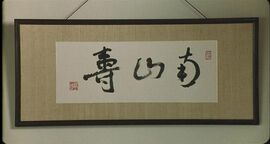 南山壽